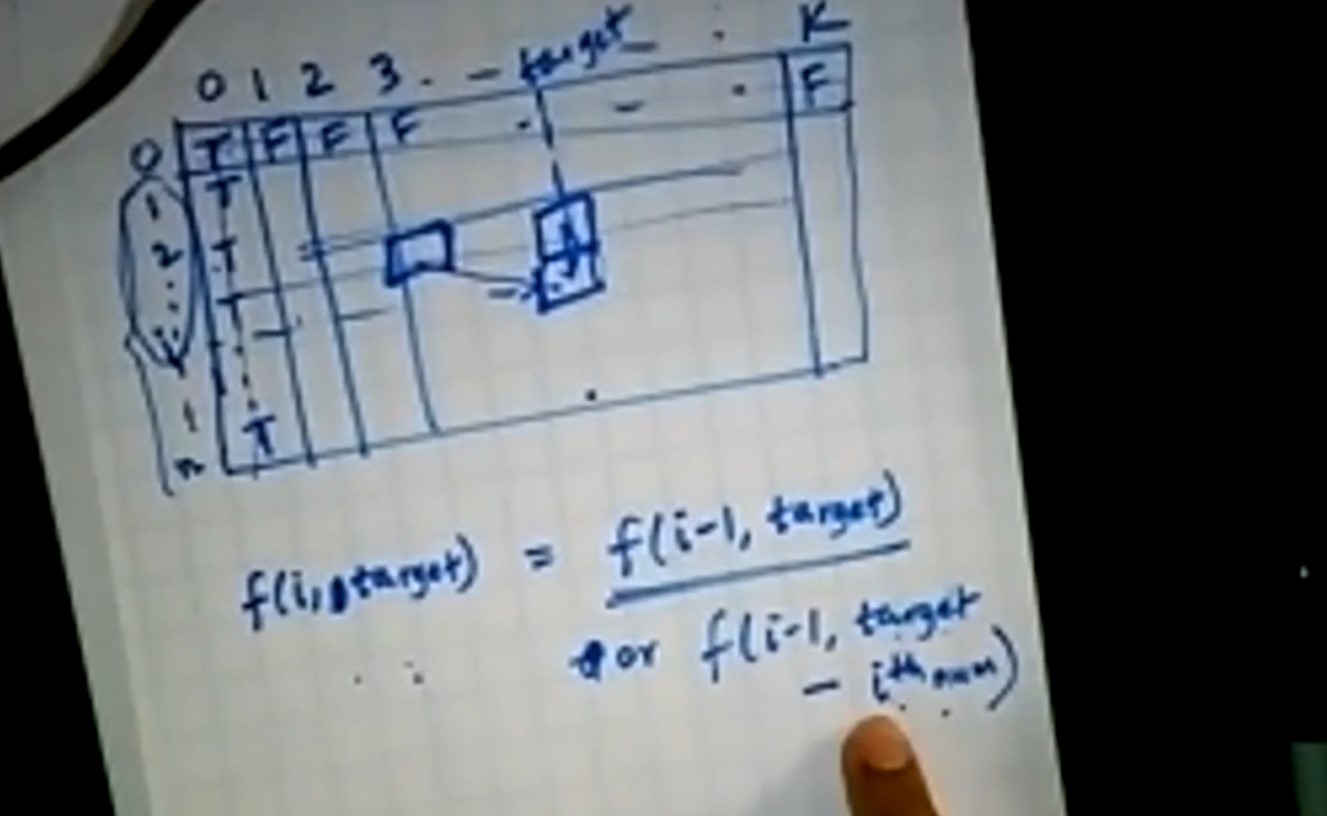 0 1 2 3 . - target . K
0 T F F F . - . F
1 T
2 T
: T
i
: :
n T
f(i, target) = f(i-1, target)
or f(i-1, target
- ith num)